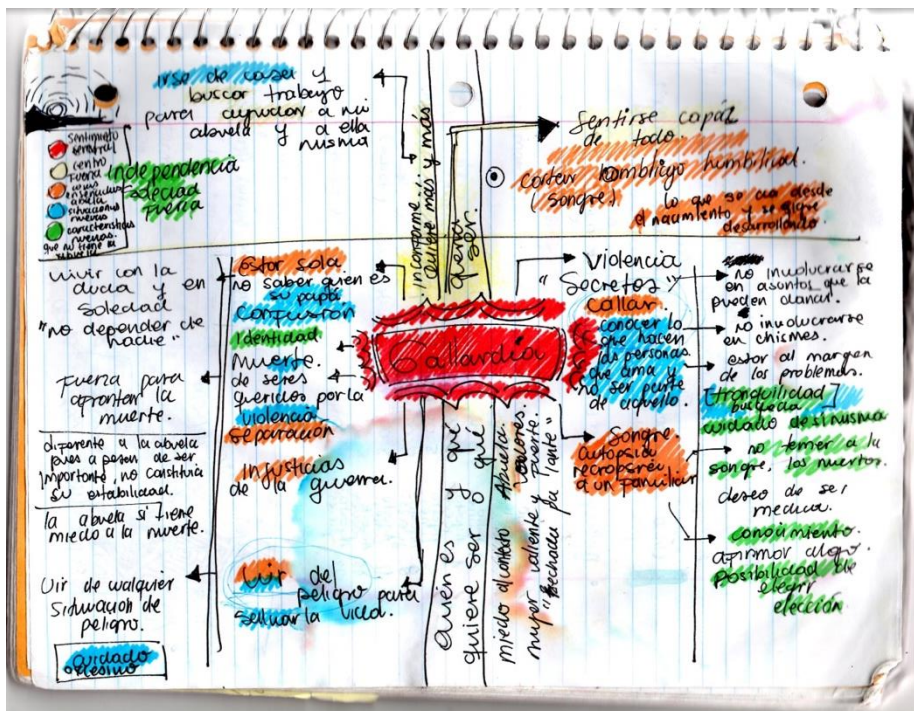 irse de casa y
buscar trabajo
para ayudar a mi
abuela y a ella
misma
Sentimiento
central
centro
fuerza
cosas
abuela
situaciones
nuevas
características
nuevas.
que no tiene la
abuela
independencia
soledad
fuerza
inconforme
quiere más y más
querer
ser.
Sentirse capáz
de todo.
cortar hombligo humbilical.
(sangre)
lo que se da desde
el nacimiento y se sigue
desarrollando
vivir con la
duda y en
soledad
"no depender de
nadie"
Fuerza para
afrontar la
muerte.
diferente a la abuela
pues a pesar de ser
importante, no constituia
su estabilidad.
la abuela si tiene
miedo a la muerte.
Uir de cualquier
situación de
peligro.
cuidado
Estar sola
no saber quien es
su papá
Confusión
Identidad
Muerte
de seres
queridos por la
violencia
separación
Injusticias
de la guerra.
Uir del
peligro para
salvar la vida.
Gallardía
Quien es y qué
quiere ser o qué
miedo al contacto
Abuela.
mujer valiente y fuerte.
"echada pa lante"
Violencia
"Secretos"
callar
conocer lo
que hacen
las personas
que ama y
no ser parte
de aquello.
Sangre
autopsia
a un familiar
no involucrarse
en asontos que la
pueden dañar.
no involucrarse
en chismes.
estar al margen
de los problemas.
[tranquilidad
buscada]
cuidado de si misma
no temer a la
sangre, los muertos.
deseo de ser
medica.
conocimiento
afirmar algo.
posibilidad de
elegir
elección